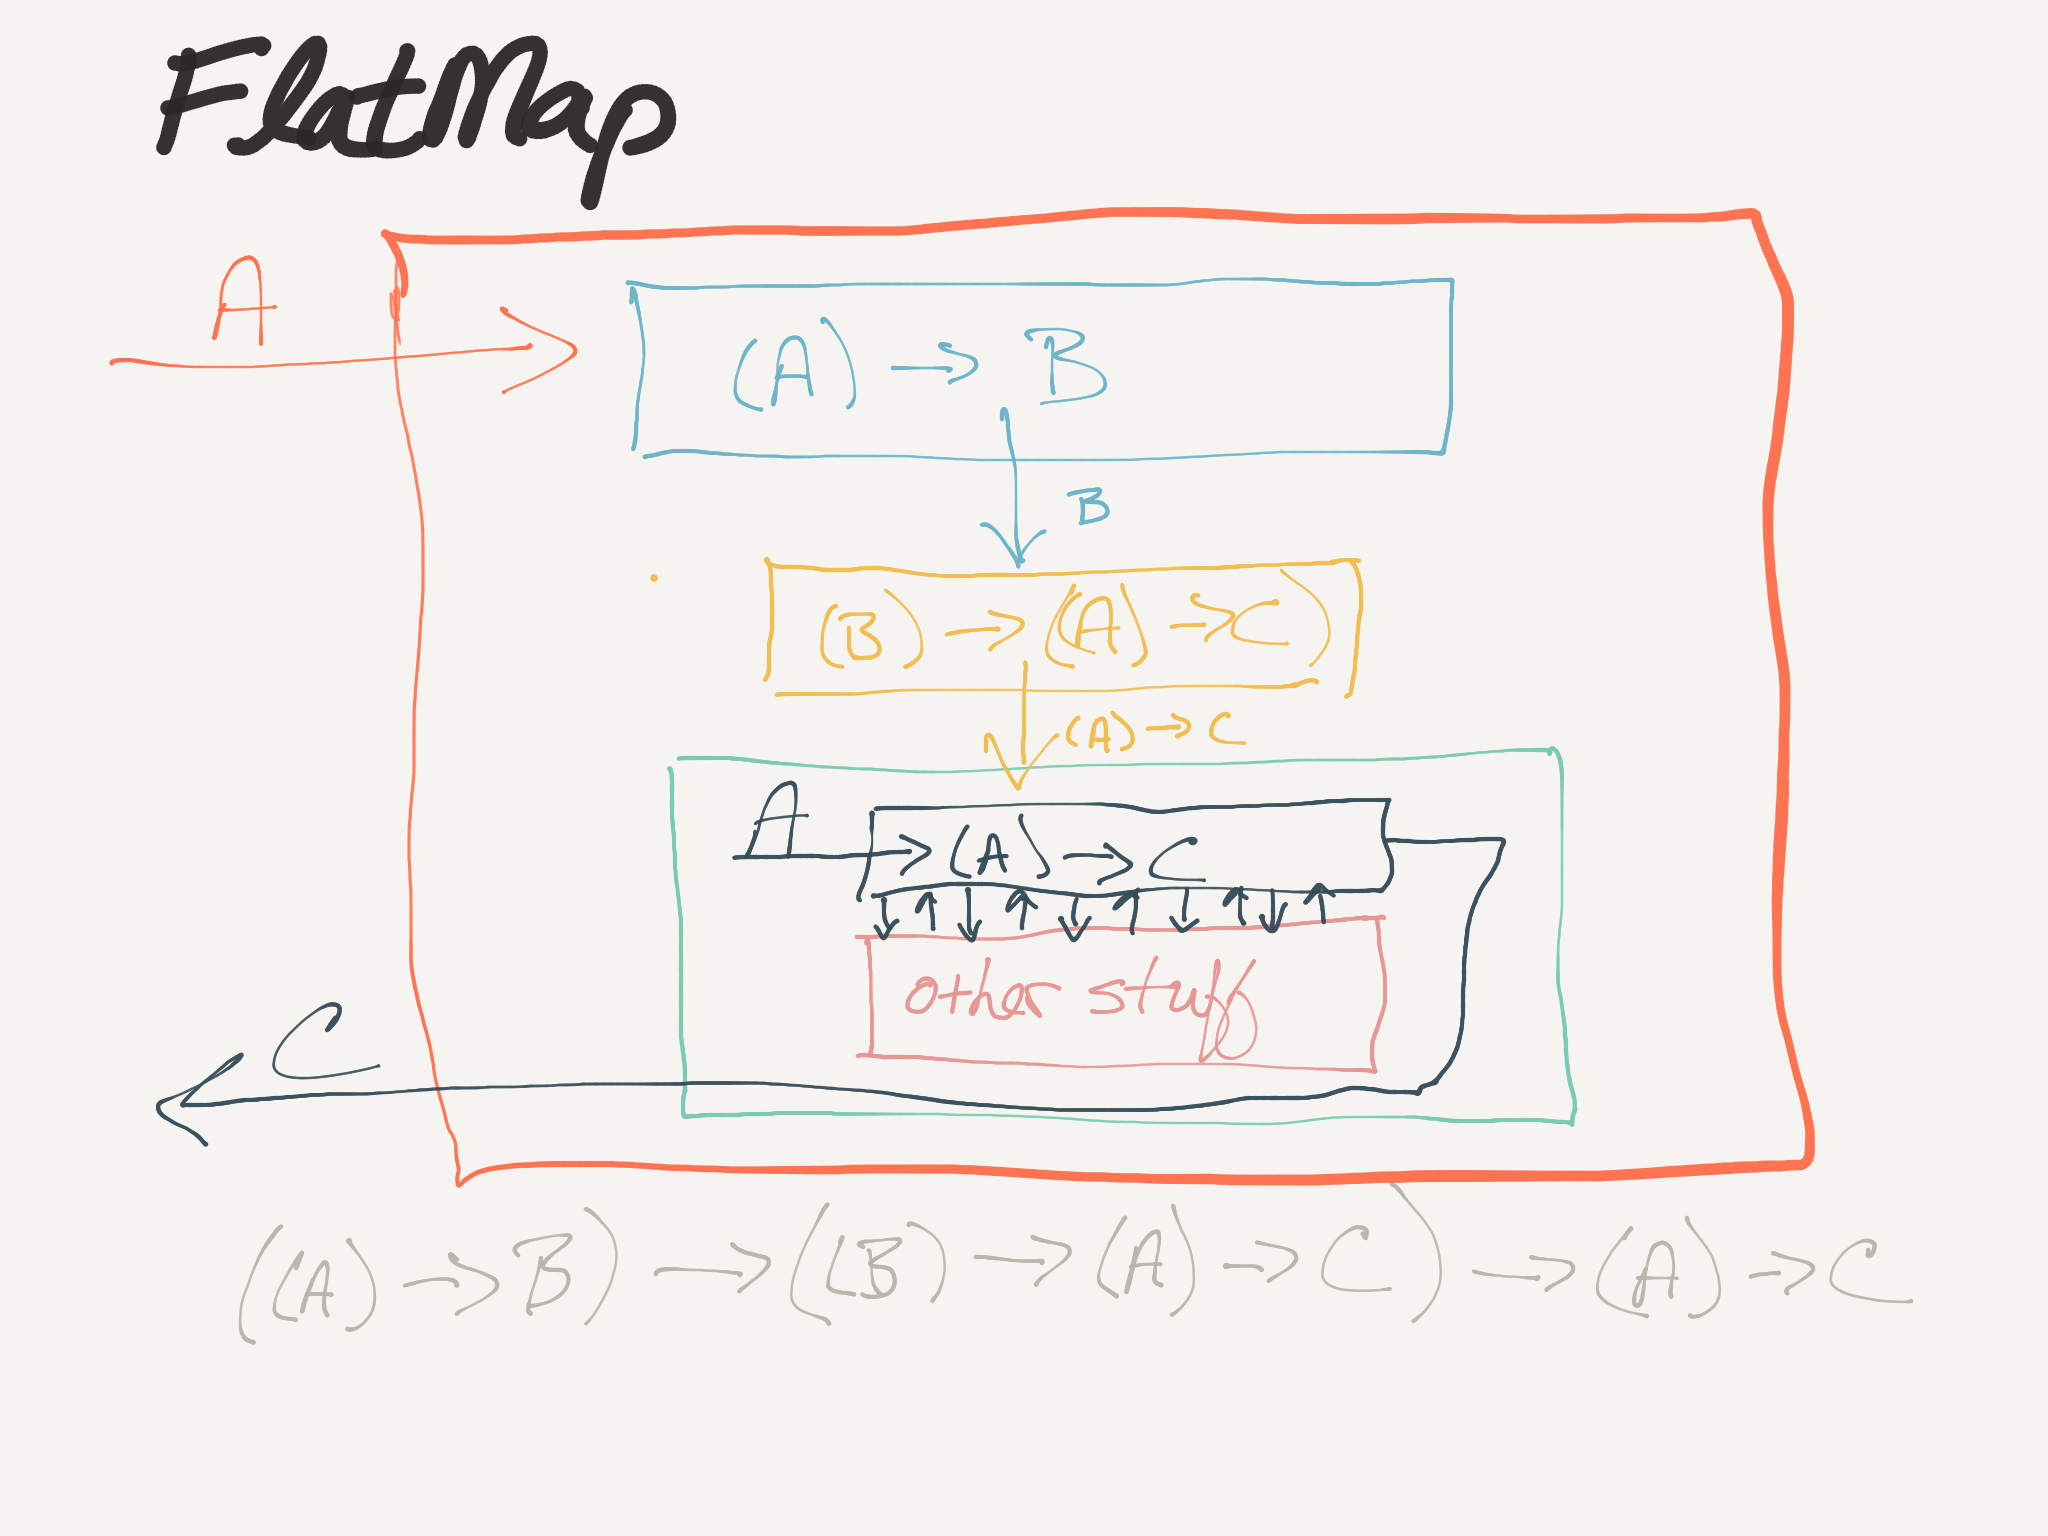 FlatMap
A
(A) → B
B
(B) → (A) → C)
(A) → C
A
(A) → C
other stuff
C
((A) → B) → ((B) → (A) → C) → (A) → C